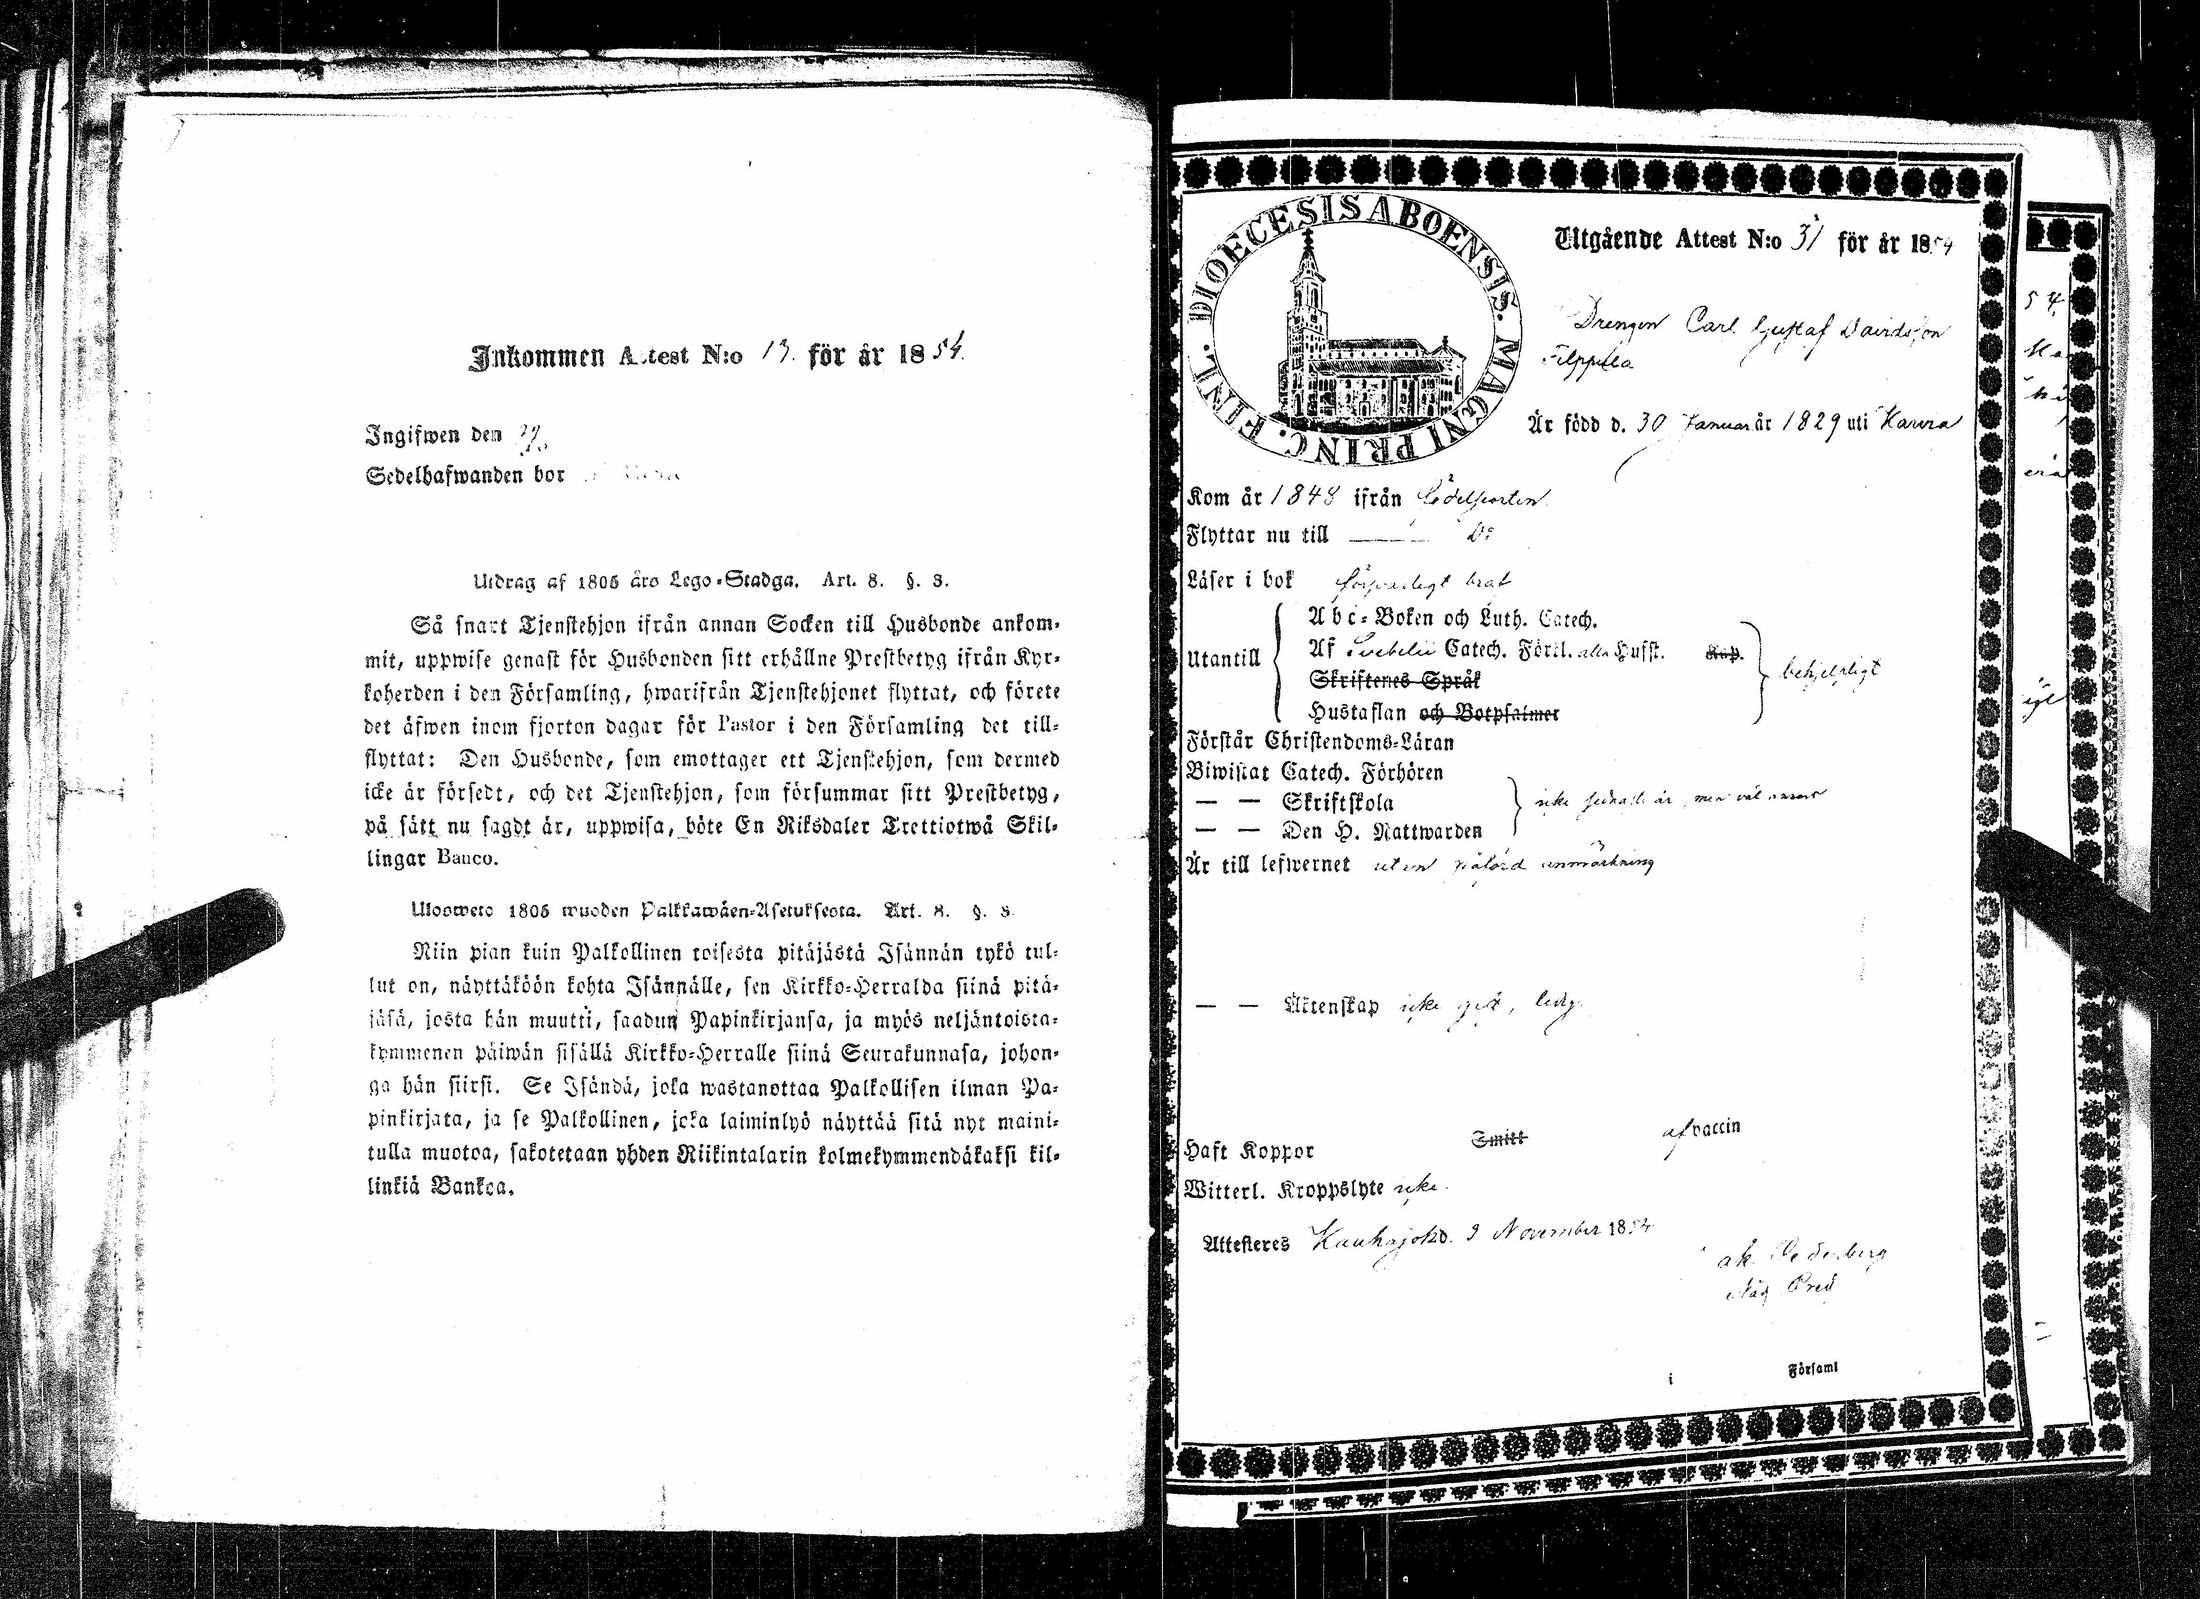 Inkommen Attest N:o 13. för år 1854.
Ingifwen den
Sedelhafwanden bor
Utdrag af 1805 års Lego-Stadga. Art. 8. §. 3.
Så snart Tjenstehjon ifrån annan Socken till Husbonde ankom-
mit, uppwise genast för Husbonden sitt erhållne Prestbetyg ifrån Kyr-
koherden i den Församling, hwarifrån Tjenstehjonet flyttat, och förete
det äfwen inom fjorton dagar för Pastor i den Församling det till-
flyttat: Den Husbonde, som emottager ett Tjenstehjon, som dermed
icke är försedt, och det Tjenstehjon, som försummar sitt Prestbetyg,
på sätt nu sagdt är, uppwisa, böte En Riksdaler Trettiotwå Skil-
lingar Banco.
Ulosweto 1805 wuoden Palkkawäen-Asetuksesta. Art. 8. §. 3.
Niin pian kuin Palkollinen toisesta pitäjästä Isännän tykö tul-
lut on, näyttäköön kohta Isännälle, sen Kirkko-Herralda siinä pitä-
jäsä, josta hän muutti, saadun Papinkirjansa, ja myös neljäntoista-
kymmenen päiwän sisällä Kirkko-Herralle siinä Seurakunnasa, johon-
ga hän siirsi. Se Isändä, joka wastanottaa Palkollisen ilman Pa-
pinkirjata, ja se Palkollinen, joka laiminlyö näyttää sitä nyt maini-
tulla muotoa, sakotetaan yhden Riikintalarin kolmekymmendäkaksi kil-
linkiä Bankoa.
DIOECESIS ABOENSIS. MAGNI PRINC. FINL.
Utgående Attest N:o 31 för år 1854
Drengen Carl Gustaf Davidsson
Filppula
Är född d. 30 Januar. år 1829 uti Karvia
Kom år 1848 ifrån Bödelsorten
Flyttar nu till ——— Do
Läser i bok försvarligt braf
Utantill
A b c-Boken och Luth. Catech.
Af Svebelii Catech. Förkl. alla Hufst. Kap.
Skriftenes Språk
Hustaflan och Botpsalmer
behjelpligt
Förstår Christendoms-Läran
Biwistat Catech. Förhören
— — Skriftskola
— — Den H. Nattwarden
icke sednaste år, men väl annars
Är till lefwernet utan påförd anmärkning
— — Äktenskap icke gift, ledig.
Haft Koppor Smitt af vaccin
Witterl. Kroppslyte icke.
Attesteres Kauhajoki d. 9 November 1854
Församl
i